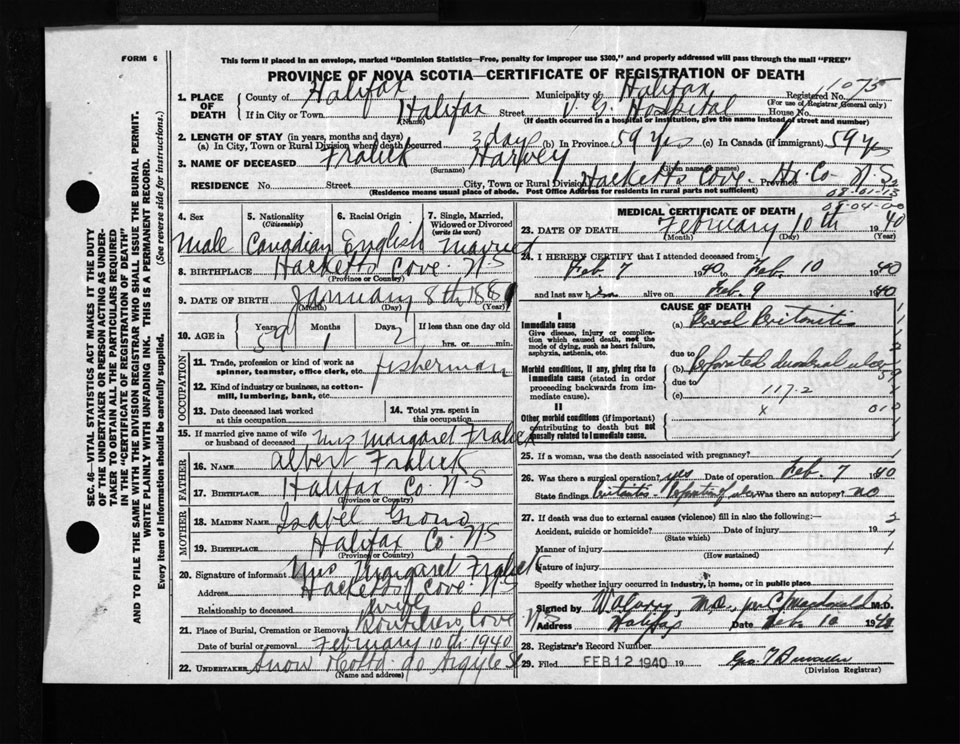 FORM 6
This form if placed in an envelope, marked "Dominion Statistics—Free, penalty for improper use $300," and properly addressed will pass through the mail "FREE"
PROVINCE OF NOVA SCOTIA—CERTIFICATE OF REGISTRATION OF DEATH
1075
1. PLACE OF DEATH County of Halifax Municipality of Halifax Registered No.
(For use of Registrar General only)
If in City or Town Halifax Street V. G. Hospital House No.
(Name) (If death occurred in a hospital or institution, give the name instead of street and number)
2. LENGTH OF STAY (in years, months and days)
(a) In City, Town or Rural Division where death occurred 3 days (b) In Province 59 yrs (c) In Canada (if immigrant) 59 yrs
3. NAME OF DECEASED Fralick Harvey
(Surname)
RESIDENCE No. Street City, Town or Rural Division Hacketts Cove Province Hx. Co. N.S.
(Residence means usual place of abode. Post Office Address for residents in rural parts not sufficient)
08-01-13
08-04-00
4. Sex Male
5. Nationality (Citizenship) Canadian
6. Racial Origin English
7. Single, Married, Widowed or Divorced (write the word) Married
8. BIRTHPLACE Hacketts Cove N.S
(Province or Country)
9. DATE OF BIRTH January 8th 1881
(Month) (Day) (Year)
10. AGE in Years 59 Months 1 Days 2 If less than one day old
hrs. or min.
OCCUPATION
11. Trade, profession or kind of work as spinner, teamster, office clerk, etc. fisherman
12. Kind of industry or business, as cotton-mill, lumbering, bank, etc.
13. Date deceased last worked at this occupation
14. Total yrs. spent in this occupation
15. If married give name of wife or husband of deceased Mrs Margaret Fralick
FATHER
16. NAME Albert Fralick
17. BIRTHPLACE Halifax Co. N.S
(Province or Country)
MOTHER
18. MAIDEN NAME Isabel
19. BIRTHPLACE Halifax Co. N.S
(Province or Country)
20. Signature of informant Mrs Margaret Fralick
Address Hacketts Cove N.S
Relationship to deceased wife
21. Place of Burial, Cremation or Removal Boutiliers Cove
Date of burial or removal February 10th 1940
22. UNDERTAKER Snow & Co Ltd 90 Argyle St
(Name and address)
MEDICAL CERTIFICATE OF DEATH
23. DATE OF DEATH February 10th 1940
(Month) (Day) (Year)
24. I HEREBY CERTIFY that I attended deceased from:
Feb. 7 1940 to Feb. 10 1940
and last saw him alive on Feb. 9 1940
CAUSE OF DEATH
I
Immediate cause
Give disease, injury or complication which caused death, not the mode of dying, such as heart failure, asphyxia, asthenia, etc.
(a) General Peritonitis
due to
Morbid conditions, if any, giving rise to immediate cause (stated in order proceeding backwards from immediate cause).
(b) Perforated duodenal ulcer
due to
(c) 117.2
x
II
Other morbid conditions (if important) contributing to death but not causally related to immediate cause.
25. If a woman, was the death associated with pregnancy?
26. Was there a surgical operation? yes Date of operation Feb. 7 1940
State findings Peritonitis - Perforation of ulcer Was there an autopsy? no
27. If death was due to external causes (violence) fill in also the following:—
Accident, suicide or homicide? Date of injury 19
(State which)
Manner of injury
(How sustained)
Nature of injury
Specify whether injury occurred in industry, in home, or in public place
Signed by M.D. per C. Macdonald M.D.
Address Halifax N.S Date Feb. 10 1940
28. Registrar's Record Number
29. Filed FEB 12 1940 19
(Division Registrar)
SEC. 46—VITAL STATISTICS ACT MAKES IT THE DUTY
OF THE UNDERTAKER OR PERSON ACTING AS UNDER-
TAKER TO OBTAIN ALL THE PARTICULARS REQUIRED
IN THE "CERTIFICATE OF REGISTRATION OF DEATH"
AND TO FILE THE SAME WITH THE DIVISION REGISTRAR WHO SHALL ISSUE THE BURIAL PERMIT.
WRITE PLAINLY WITH UNFADING INK. THIS IS A PERMANENT RECORD.
Every item of information should be carefully supplied. (See reverse side for instructions.)